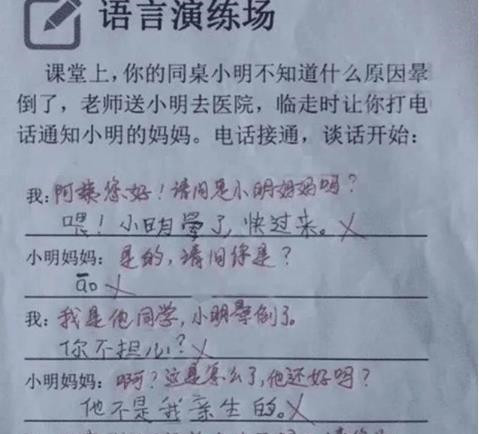 语言演练场
课堂上，你的同桌小明不知道什么原因晕
倒了，老师送小明去医院，临走时让你打电
话通知小明的妈妈。电话接通，谈话开始：
我：阿姨您好！请问是小明妈妈吗？
喂！小明晕了，快过来。X
小明妈妈：是的，请问你是？
āo X
我：我是他同学，小明晕倒了。
你不担心？X
小明妈妈：啊？这是怎么了，他还好吗？
他不是我亲生的。X